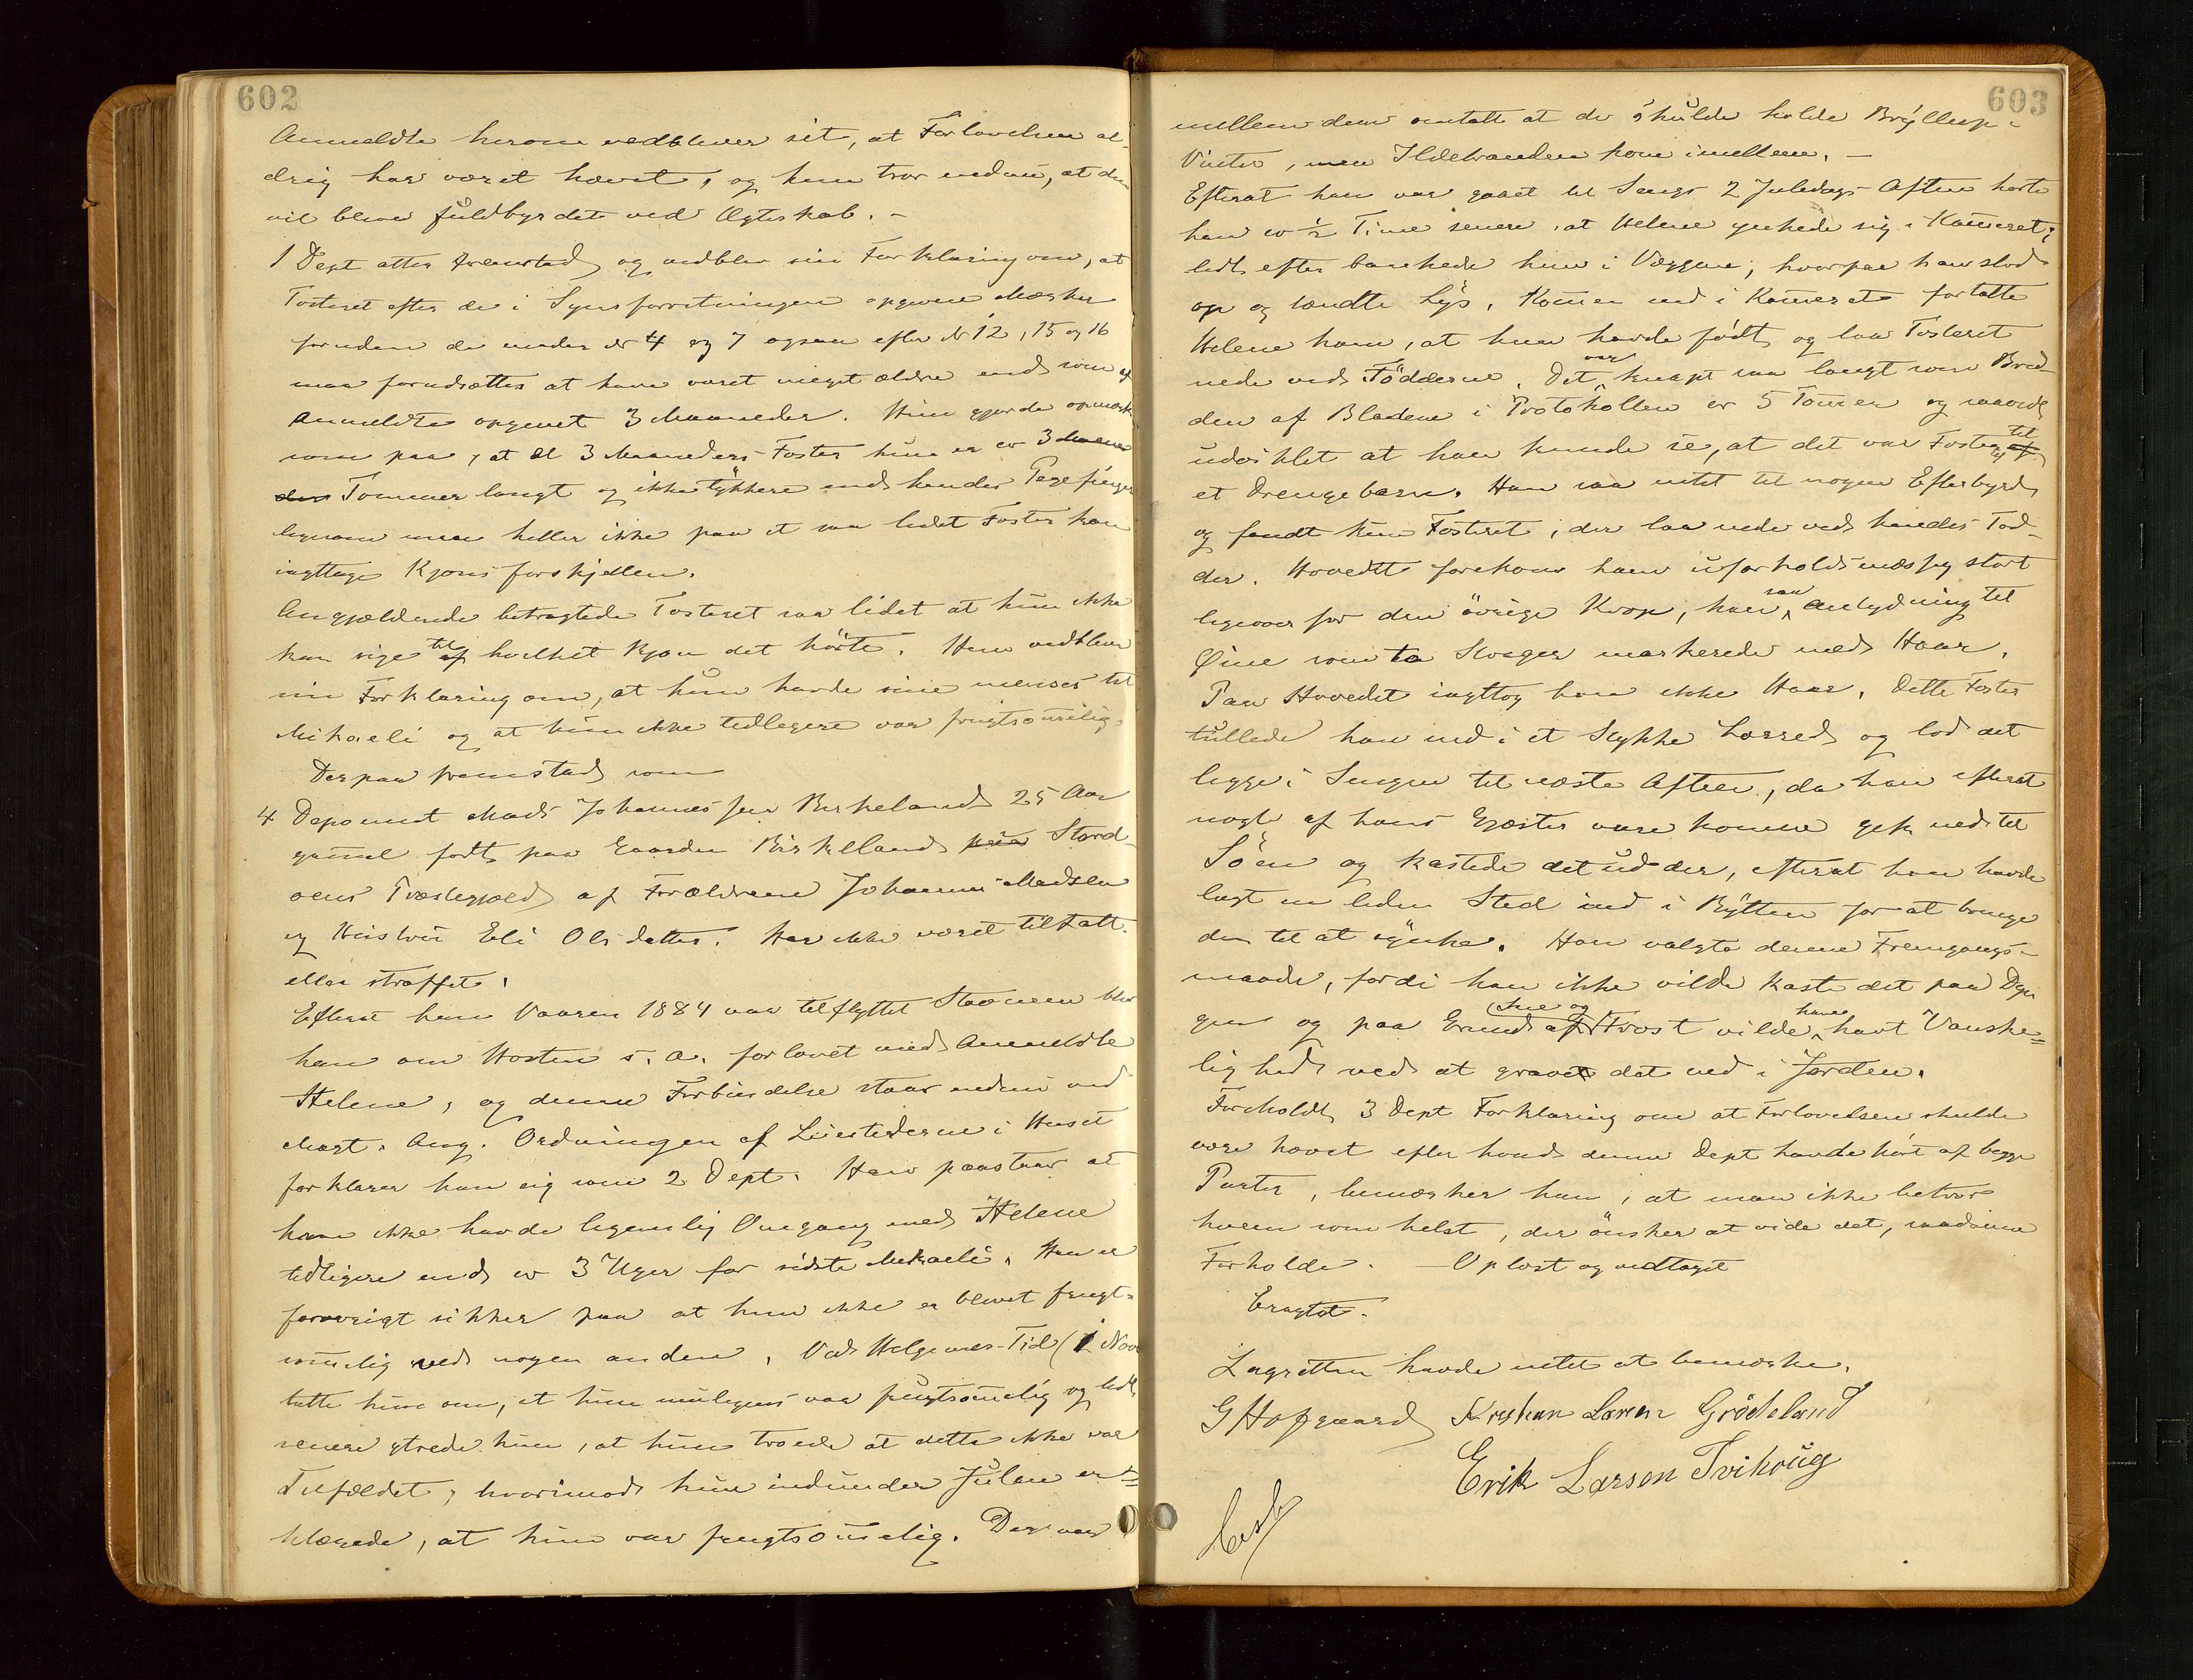 602
Anmeldte herom vedbliver sit, at Forlovelsen al-
drig har været hævet, og hun tror endnu, at den
vil blive fuldbyrdet ved Ægteskab. –
1 Dept atter fremstod og vedblev sin Forklaring om, at
Fosteret efter de i Synsforretningen opgivne Mærker
foruden de under № 4 og 7 ogsaa efter № 12, 15 og 16
maa forudsættes at have været meget ældre end som af
Anmeldte opgivet 3 Maaneder. Hun gjorde opmærk
som paa, at et 3 Maaneders Foster kun er cr 3 Maane
der Tommer langt og ikke tykkere end hendes Pegefinger
ligesom man heller ikke paa et saa lidet Foster kan
iagttage Kjønsforskjellen.
Angjældende betragtede Fosteret saa lidet at hun ikke
kan sige til af hvilket Kjøn det hørte. Hun vedblev
sin Forklaring om, at hun havde sine menses til
Mikaeli og at hun ikke tidligere var frugtsommelig.
Derpaa fremstod som
4 Deponent Mads Johannessen Birkeland 25 Aar
gammel født paa Gaarden Birkeland paa Stord-
øens Præstegjæld af Forældrene Johannes Madsen
og Hustru Eli Olsdatter. Har ikke været tiltalt
eller straffet.
Efterat han Vaaren 1884 var tilflyttet blev
han om Høsten s. a. forlovet med Anmeldte
Helene, og denne Forbindelse staar endnu ved
Magt. Ang. Ordningen af Liestederne i Huset
forklarer han sig som 2 Dept. Han paastaar at
han ikke havde legemlig Omgang med Helene
tidligere end cr 3 Uger før sidste Mikaeli. Han er
forøvrigt sikker paa at hun ikke er blevet frugt-
sommelig ved nogen anden. Ved Helgemes-Tid (1 Nov
talte hun om, at hun muligens var frugtsommelig og lidt
senere ytrede hun, at hun troede at dette ikke var
Tilfældet, hvorimod hun indunder Julen er-
klærede, at hun var frugtsommelig. Der var
603
mellem dem omtalt at de skulde holde Bryllup i
Vinter, men Ildebranden kom imellem. –
Efterat han var gaaet til Sengs 2 Juledags Aften hørte
han cr ½ Time senere, at Helene ynkede sig i Kammeret;
lidt efter bankede hun i Væggen, hvorpaa han stod
op og tændte Lys. Kommen ind i Kammeret fortalte
Helene ham, at hun havde født og laa Fosteret
nede ved Fødderne. Det var knapt saa langt som Bred-
den af Bladene i Protokollen cr 5 Tommer og saavidt
udviklet at han kunde se, at det var Foster til af
et Drengebarn. Han saa intet til nogen Efterbyrd
og fandt kun Fosteret, der laa nede ved hendes Fød-
der. Hovedet forekom ham uforholdsmæssig stort
ligeover for den øvrige Krop, han saa Antydning til
Øine som to Streger markerede med Haar.
Paa Hovedet iagttog han ikke Haar. Dette Foster
tullede han ind i et Stykke Lærred og lod det
ligge i Sengen til næste Aften, da han efterat
nogle af hans Gjæster vare komne gik ned til
Søen og kastede det ud der, efterat han havde
lagt en liden Sted ind i Bylten for at bringe
den til at synke. Han valgte denne Fremgangs-
maade, fordi han ikke vilde kaste det paa Dyn
gen og paa Grund af Sne og Frost vilde have havt Vanske-
lighed ved at grave det ned i Jorden.
Foreholdt 3 Dept Forklaring om at Forlovelsen skulde
være hævet efter hvad denne Dept havde hørt af begge
Parter, bemærker han, at man ikke betror
hvem som helst, der ønsker at vide det, saadanne
Forholde. – Oplæst og vedtaget
Eragtet.
Lagretten havde intet at bemærke.
G Hofgaard Kristian Larsen Grödeland
Erik Larsen Tvihoug